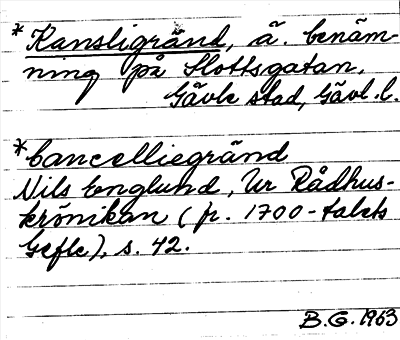 *Kansligränd, ä. benäm-
ning på Slottsgatan.
Gävle stad, Gävl. l.
*Cancelliegränd
Nils Englund, Ur Rådhus-
krönikan (fr. 1700-talets
Gefle), s. 42.
B.G. 1963